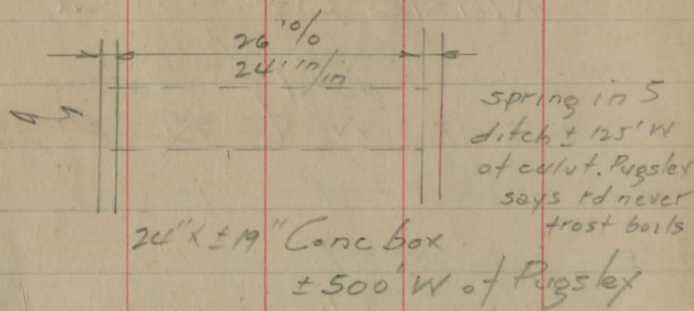 26' o/o
24' in/in
spring in S
ditch ± 125' W
of culvt. Pugsley
says rd never
frost boils
24" X ± 19" Conc box
± 500' W of Pugsley